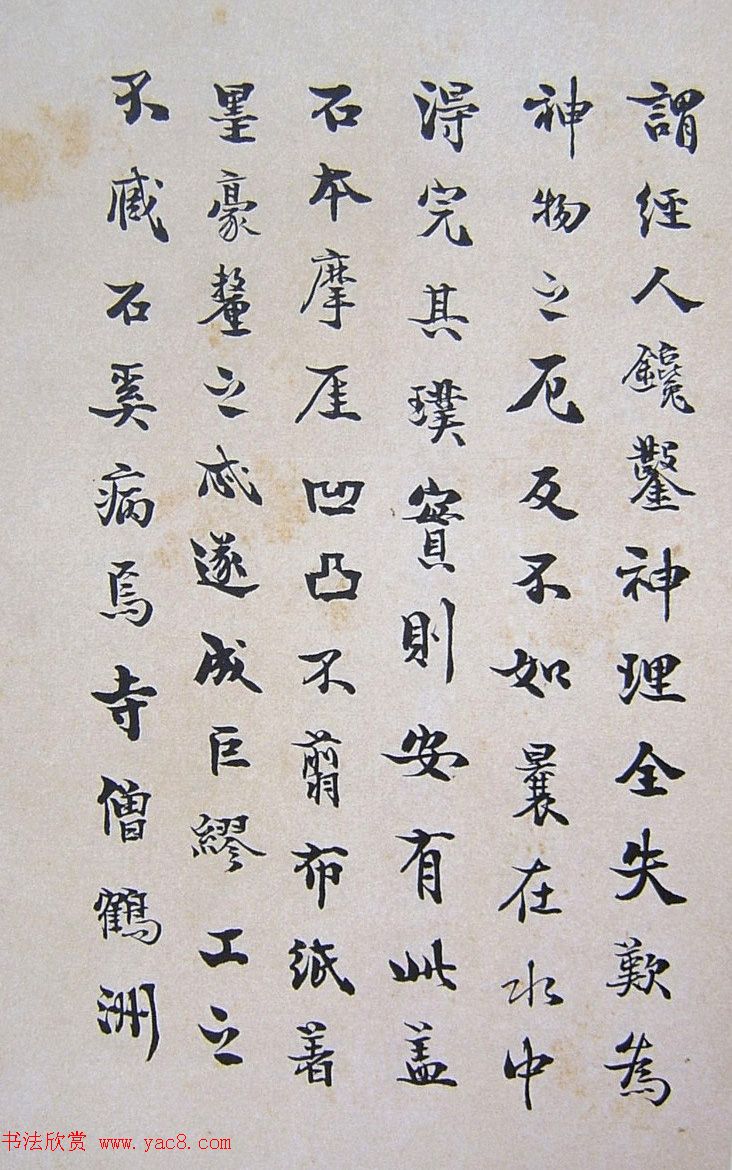 謂經人鑱鑿神理全失歎為
神物之厄反不如曩在水中
得完其璞實則安有此盖
石本摩厓凹凸不翦布紙著
墨豪釐之忒遂成巨繆工之
不臧石奚病焉寺僧鶴洲
书法欣赏 www.yac8.com